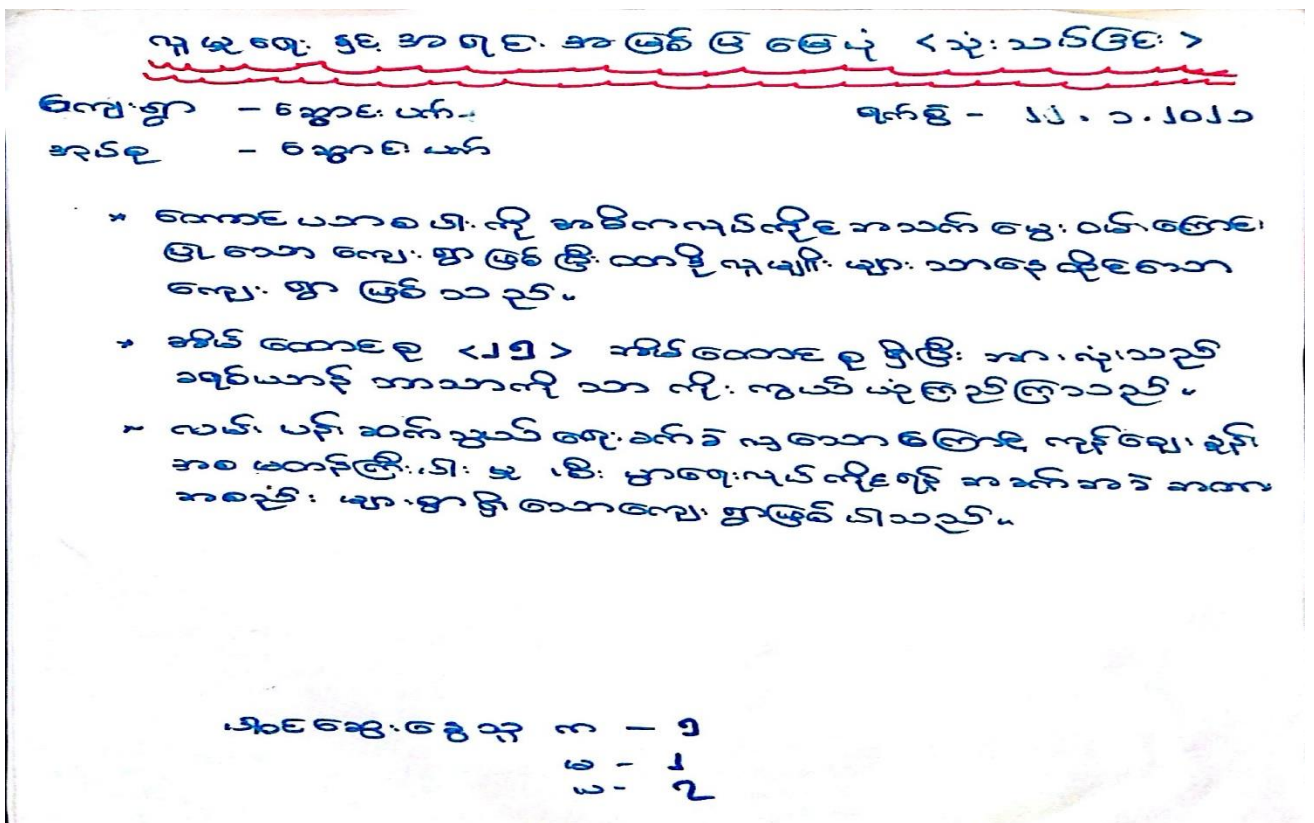 လူမှုရေး နှင့် အရင်းအမြစ်ပြမြေပုံ <သုံးသပ်ခြင်း>
ကျေးရွာ - ဆွောင်းပက်
ရက်စွဲ - ၂၂.၁.၂၀၂၁
အုပ်စု - ဆွောင်းပက်
* တောင်ယာစပါးကို အဓိကလုပ်ကိုင်အသက်မွေးဝမ်းကြောင်း
ပြုသောကျေးရွာဖြစ်ပြီး ထာဒိုလူမျိုးများသာနေထိုင်သော
ကျေးရွာဖြစ်သည်။
* အိမ်ထောင်စု <၂၅> အိမ်ထောင်စုရှိပြီး အားလုံးသည်
ခရစ်ယာန်ဘာသာကိုသာ ကိုးကွယ်ယုံကြည်ကြသည်။
* လမ်းပန်းဆက်သွယ်ရေးခက်ခဲလှသောကြောင့် ကုန်ဈေးနှုန်း
အစမတန်ကြီး စီးပွားရေးလုပ်ကိုင်ရန် အခက်အခဲအတား
အစည်းများစွာရှိသောကျေးရွာဖြစ်ပါသည်။
ပါဝင်ဆွေးနွေးသူ က - ၅
မ - ၂
ပ - ၇